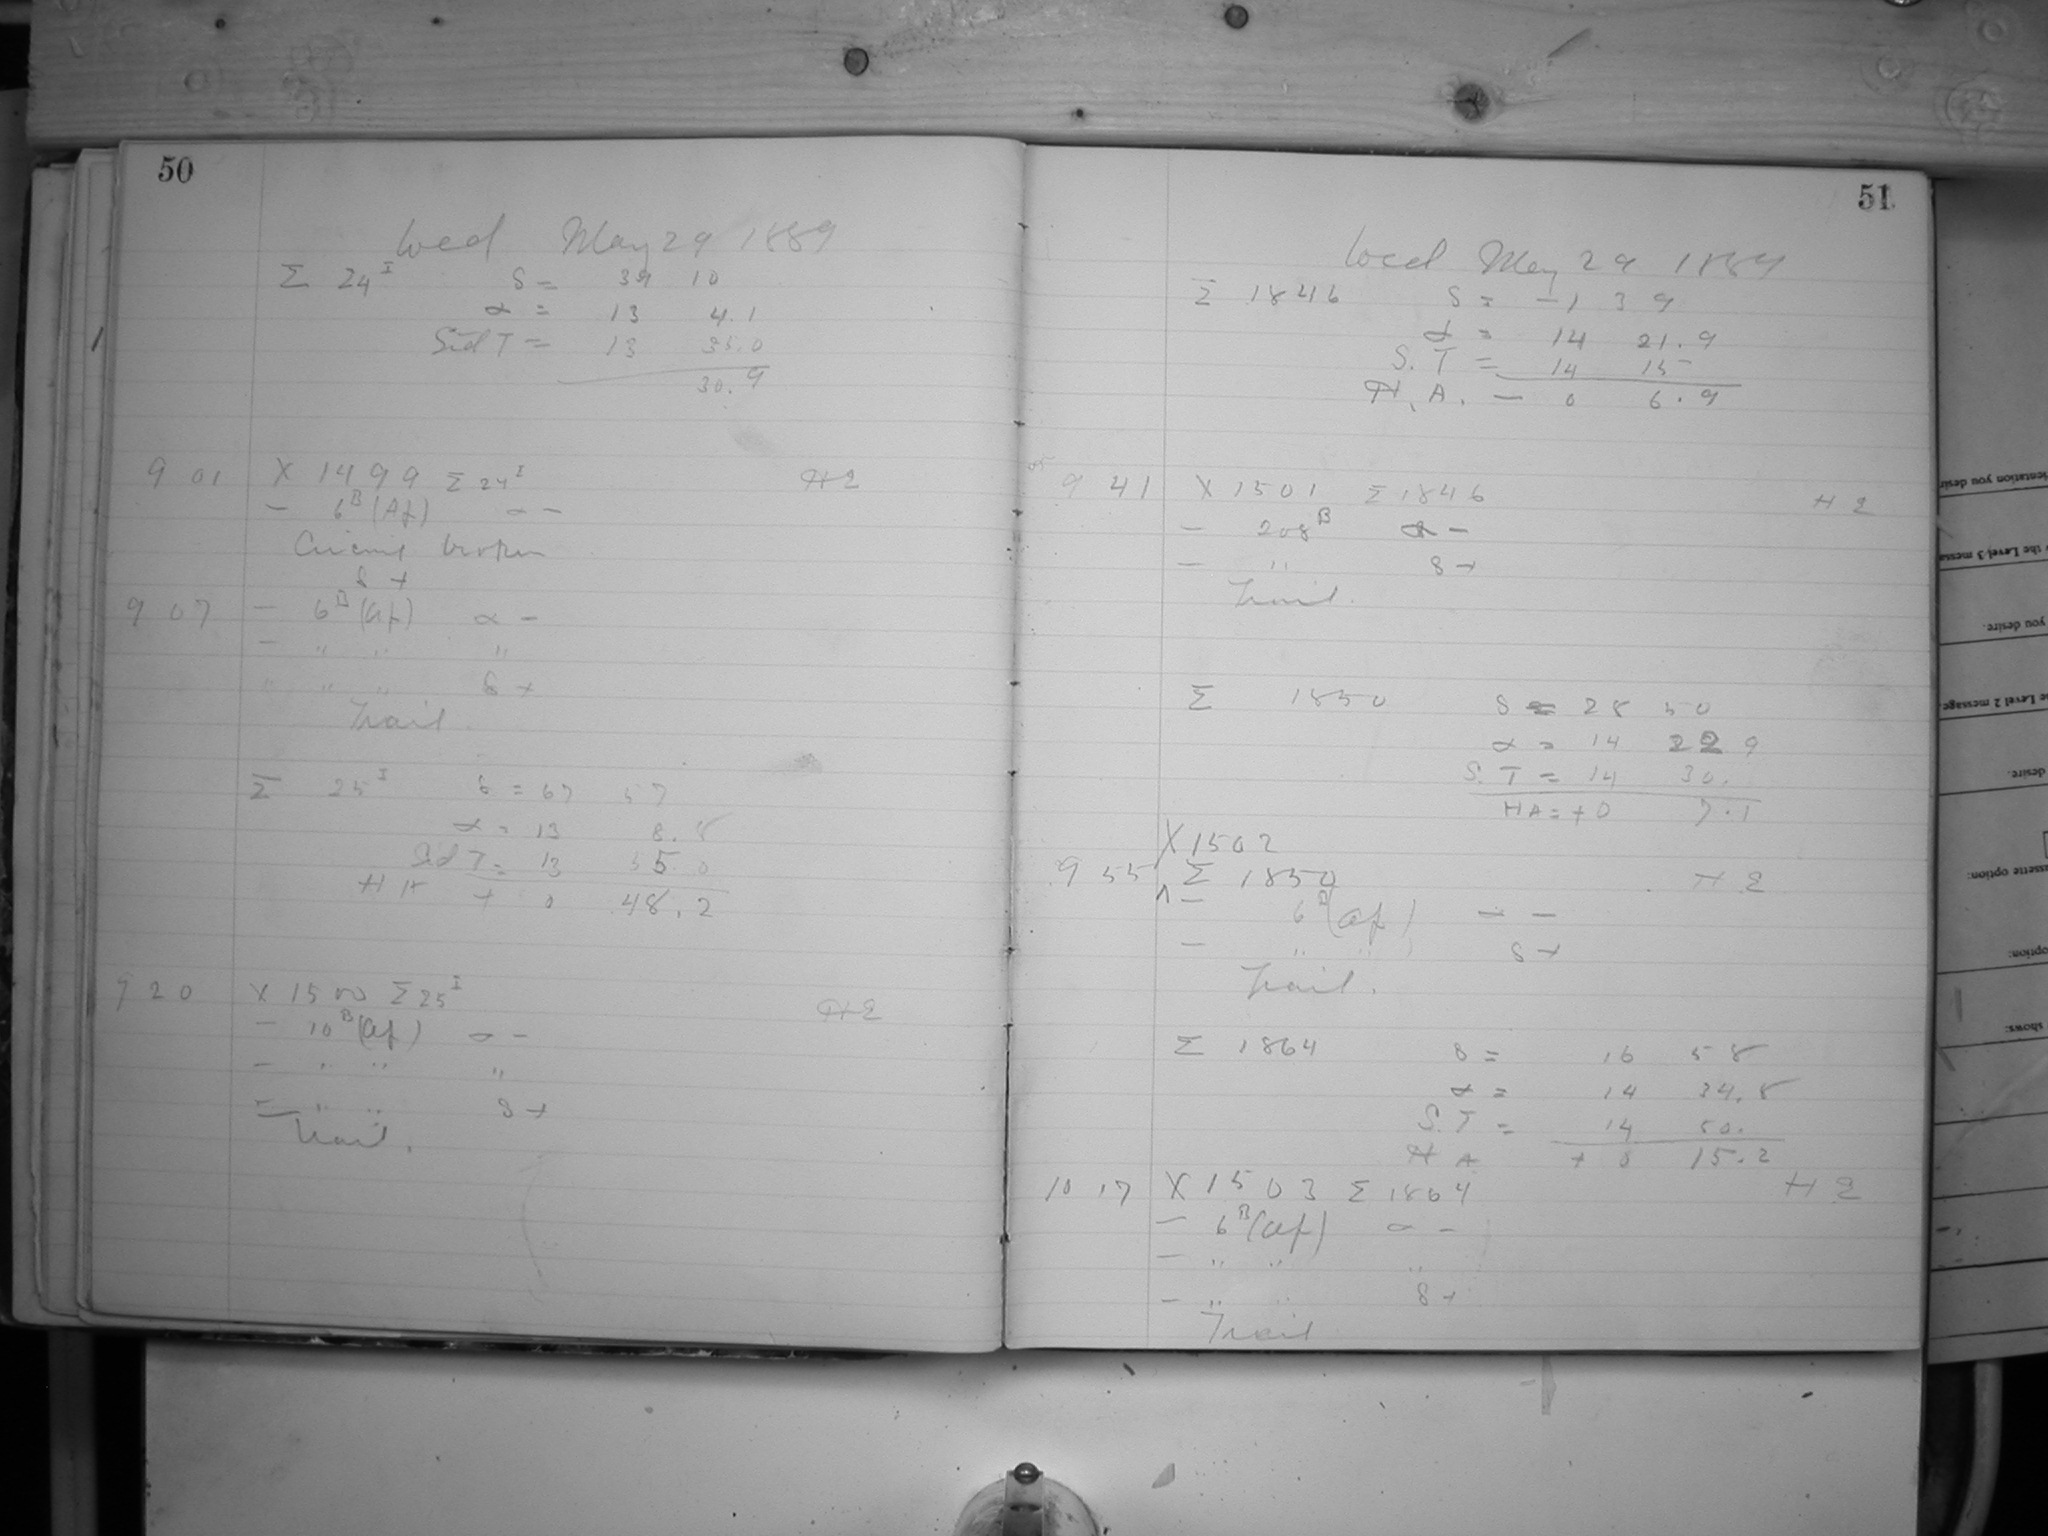 50
Wed May 29 1889
Σ 24 I δ = 39 10
α = 13 4.1
Sid T = 13 35.0
30.9
9 01 X 1499 Σ 24 I H E
— 6 B (Af) α —
Circuit broken
δ +
9 07 — 6 B (Af) α —
— " " "
" " " δ +
Trail
Σ 25 I δ = 67 57
α = 13 8.8
Sid T = 13 55.0
H A + 0 48.2
9 20 X 1500 Σ 25 I H E
— 10 B (Af) α —
— " " "
— " " δ +
Trail.
51
Wed May 29 1889
Σ 1846 δ = -1 39
α = 14 21.9
S. T = 14 15
H. A. — 0 6.9
9 41 X 1501 Σ 1846 H E
— 208 B α —
— " δ +
Trail.
Σ 1850 δ = 28 50
α = 14 22 9
S. T = 14 30.
HA = + 0 7.1
X 1502
9 55 Σ 1850 H E
— 6 B (Af) α —
— " " δ +
Trail.
Σ 1864 δ = 16 58
α = 14 34.8
S. T = 14 50.
H A + 0 15.2
10 17 X 1503 Σ 1864 H E
— 6 B (Af) α —
— " " "
— " " δ +
Trail